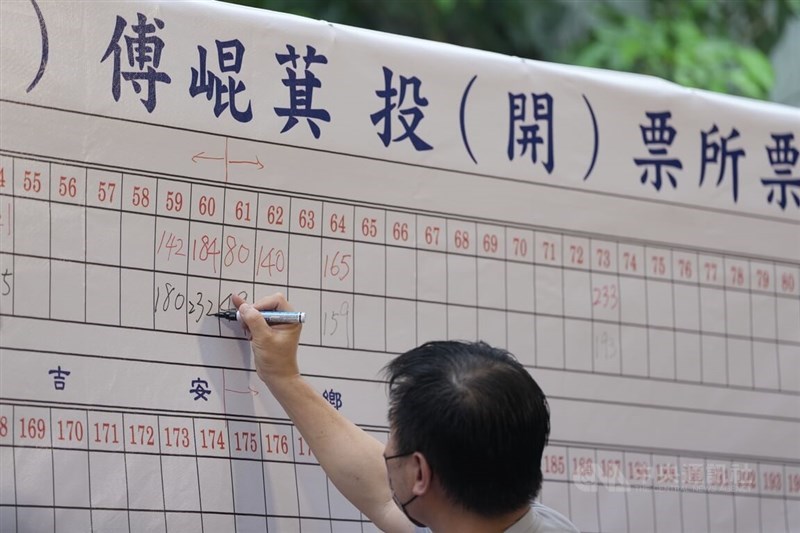 ) 傅崐萁 投(開)票所票
55 56 57 58 59 60 61 62 63 64 65 66 67 68 69 70 71 72 73 74 75 76 77 78 79 80
142 184 80 140 165 233
180 232 159 193
吉 安 鄉
169 170 171 172 173 174 175 176 185 186 187 193
中央通訊社